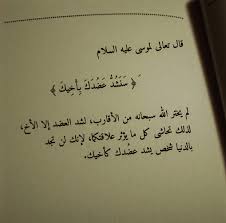 قال تعالى لموسى عليه السلام
﴿ سَنَشُدُّ عَضُدَكَ بِأَخِيكَ ﴾
لم يختر الله سبحانه من الأقارب، لشد العضد إلا الأخ،
لذلك تحاشى كل ما يؤثر علاقتكما، لإنك لن تجد
بالدنيا شخص يشد عضُدك كأخيك.